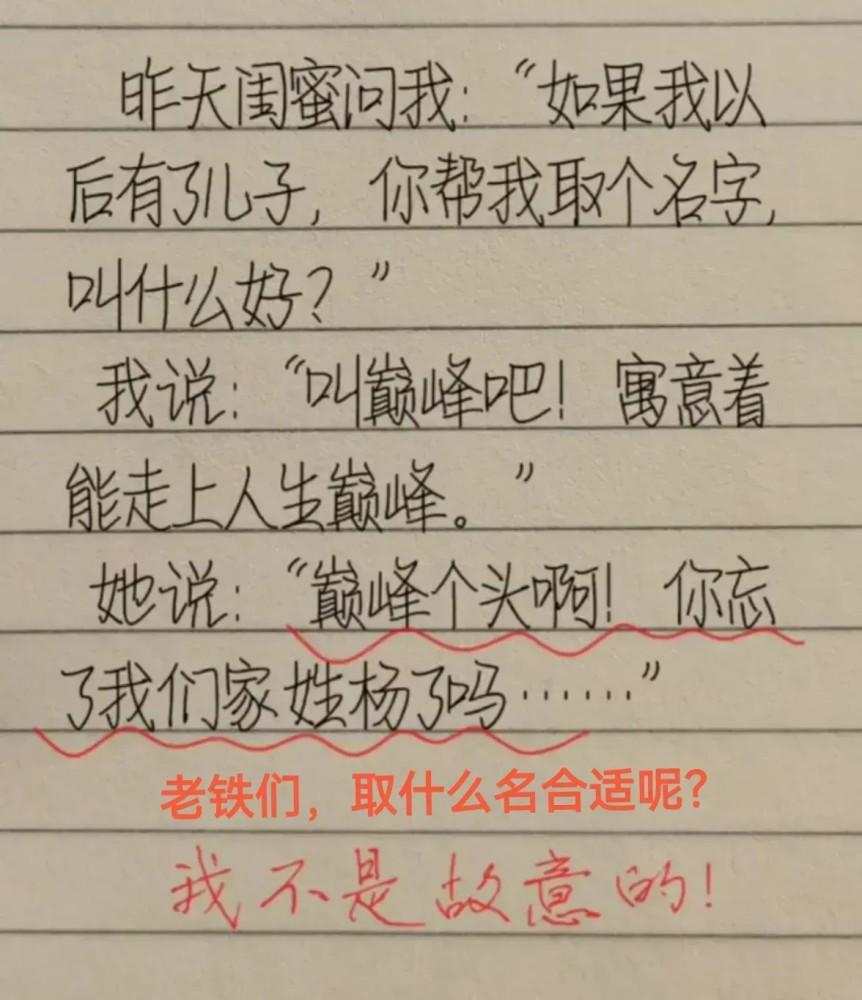 昨天闺蜜问我：“如果我以
后有了儿子，你帮我取个名字，
叫什么好？”
我说：“叫巅峰吧！寓意着
能走上人生巅峰。”
她说：“巅峰个头啊！你忘
了我们家姓杨了吗……”
老铁们，取什么名合适呢？
我不是故意的！